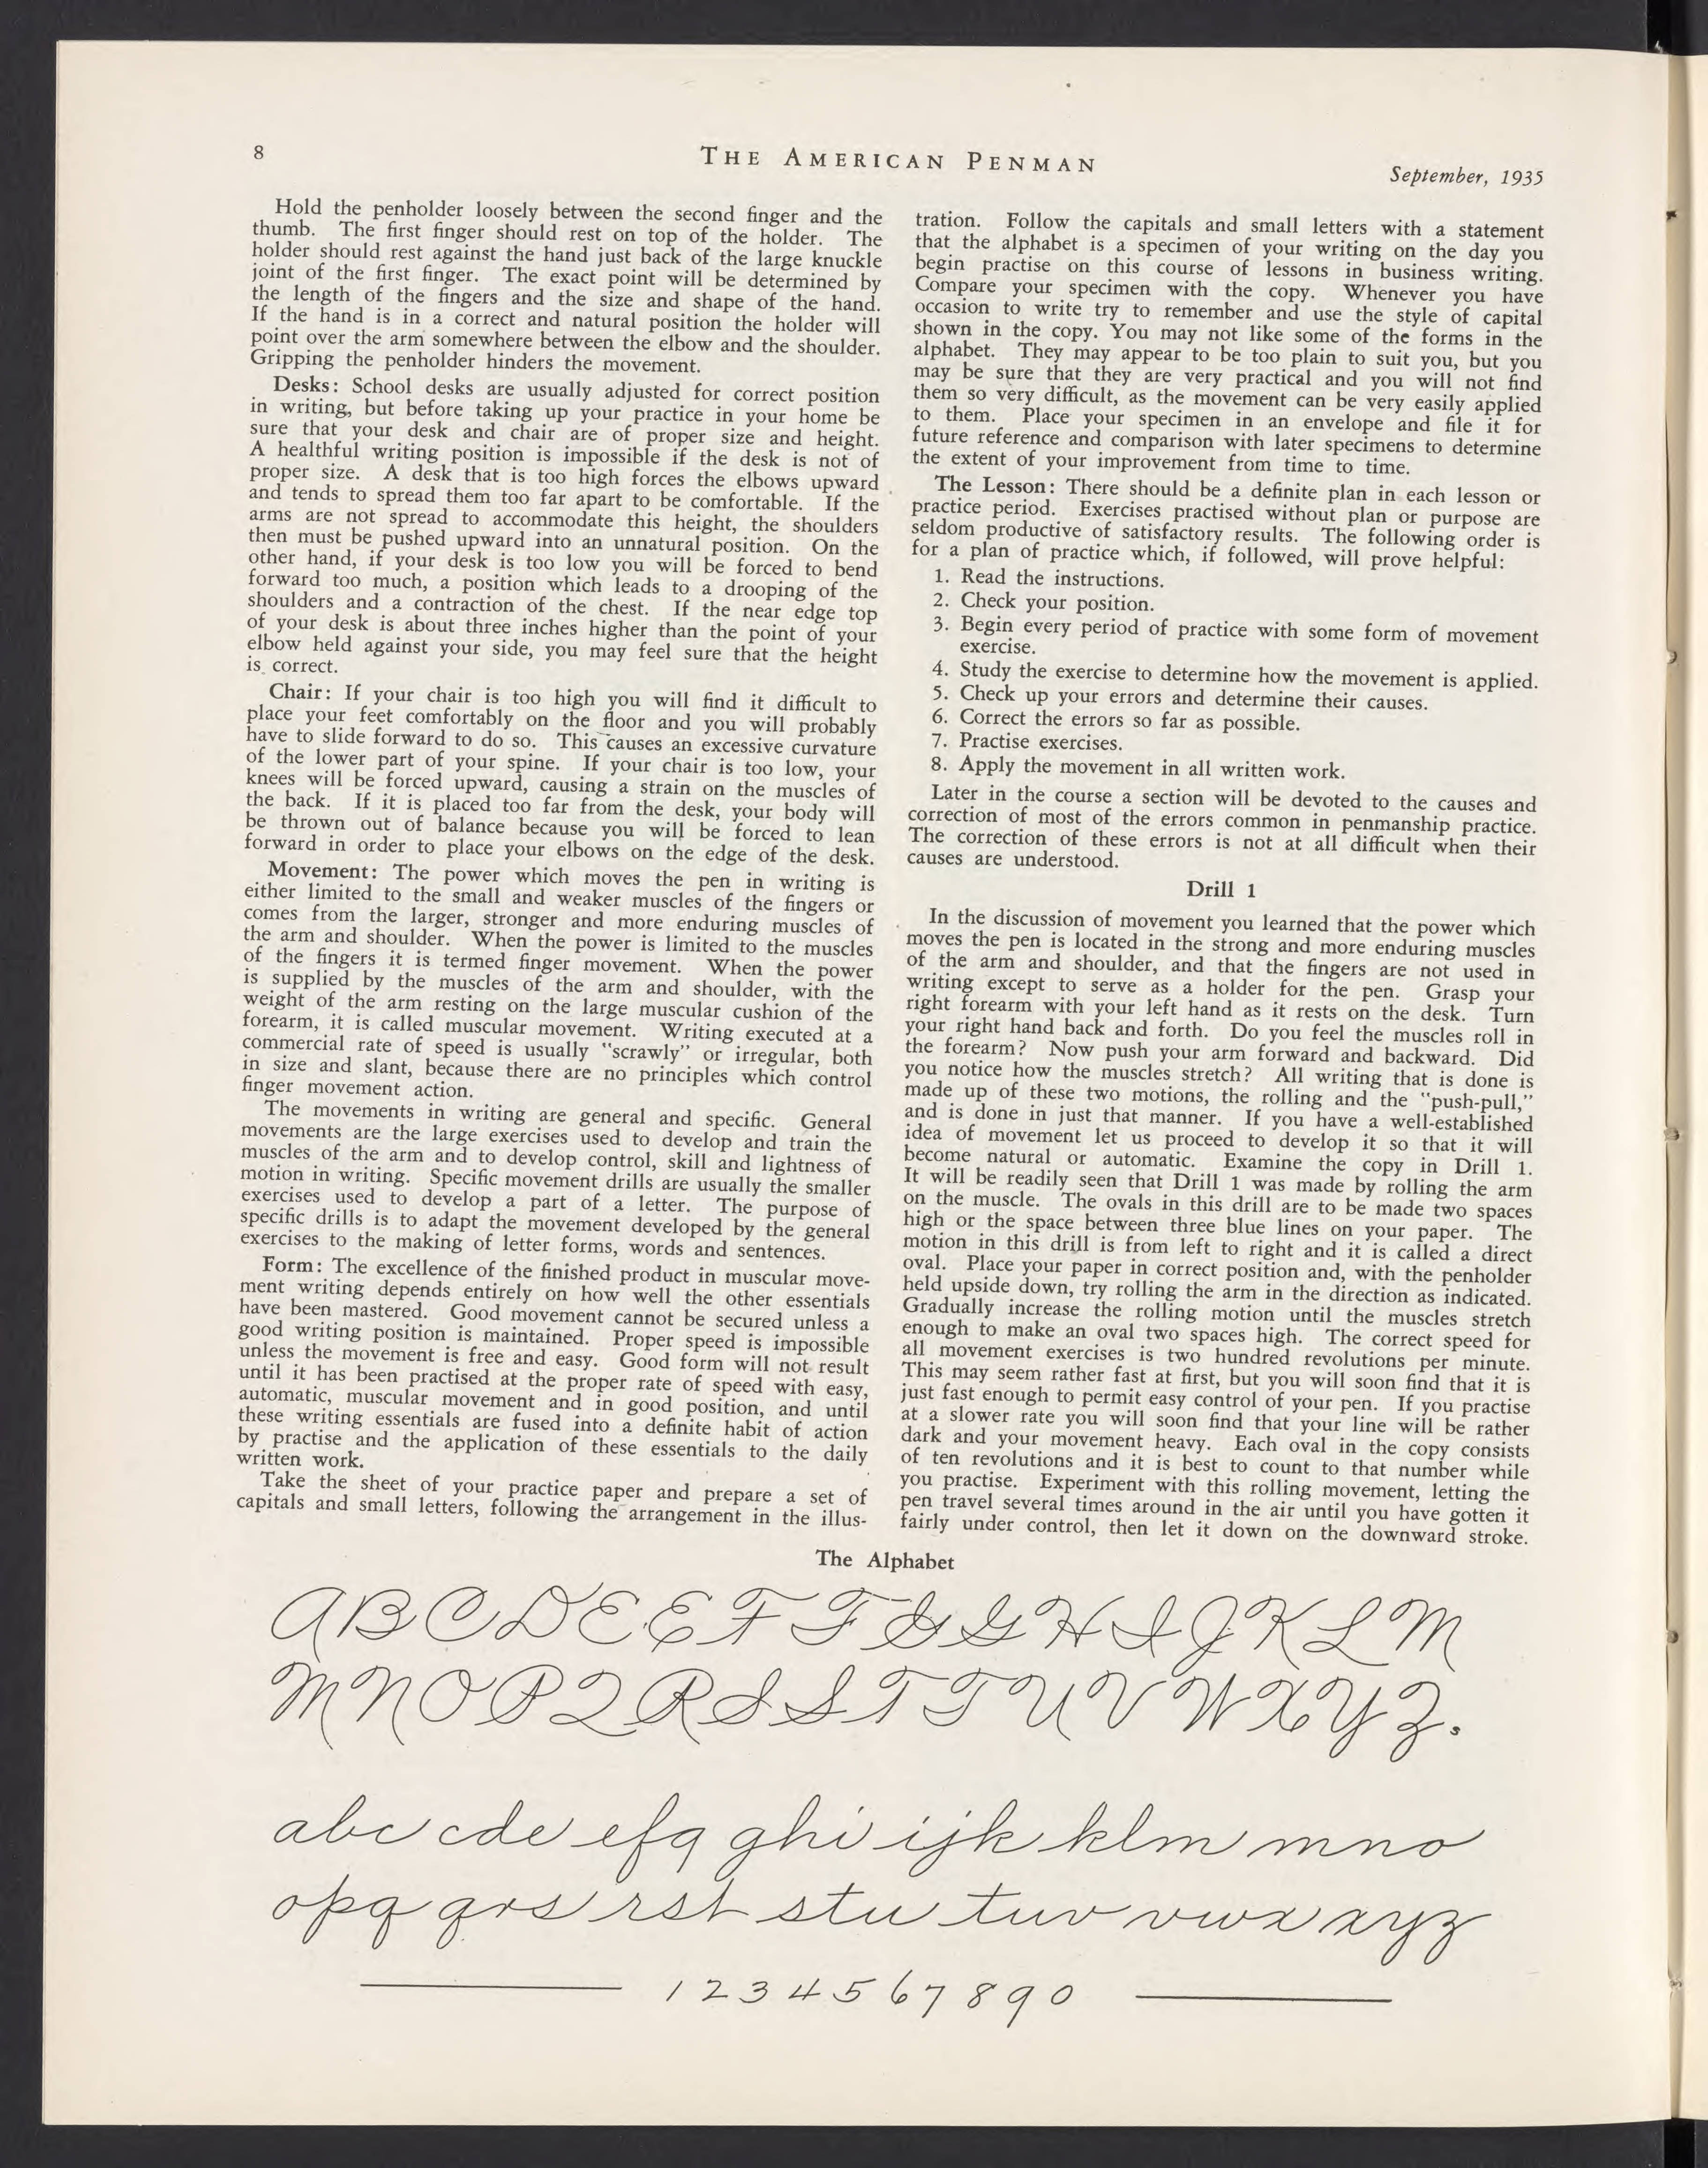 8
THE AMERICAN PENMAN
September, 1935
Hold the penholder loosely between the second finger and the
thumb. The first finger should rest on top of the holder. The
holder should rest against the hand just back of the large knuckle
joint of the first finger. The exact point will be determined by
the length of the fingers and the size and shape of the hand.
If the hand is in a correct and natural position the holder will
point over the arm somewhere between the elbow and the shoulder.
Gripping the penholder hinders the movement.
Desks: School desks are usually adjusted for correct position
in writing, but before taking up your practice in your home be
sure that your desk and chair are of proper size and height.
A healthful writing position is impossible if the desk is not of
proper size. A desk that is too high forces the elbows upward
and tends to spread them too far apart to be comfortable. If the
arms are not spread to accommodate this height, the shoulders
then must be pushed upward into an unnatural position. On the
other hand, if your desk is too low you will be forced to bend
forward too much, a position which leads to a drooping of the
shoulders and a contraction of the chest. If the near edge top
of your desk is about three inches higher than the point of your
elbow held against your side, you may feel sure that the height
is correct.
Chair: If your chair is too high you will find it difficult to
place your feet comfortably on the floor and you will probably
have to slide forward to do so. This causes an excessive curvature
of the lower part of your spine. If your chair is too low, your
knees will be forced upward, causing a strain on the muscles of
the back. If it is placed too far from the desk, your body will
be thrown out of balance because you will be forced to lean
forward in order to place your elbows on the edge of the desk.
Movement: The power which moves the pen in writing is
either limited to the small and weaker muscles of the fingers or
comes from the larger, stronger and more enduring muscles of
the arm and shoulder. When the power is limited to the muscles
of the fingers it is termed finger movement. When the power
is supplied by the muscles of the arm and shoulder, with the
weight of the arm resting on the large muscular cushion of the
forearm, it is called muscular movement. Writing executed at a
commercial rate of speed is usually "scrawly" or irregular, both
in size and slant, because there are no principles which control
finger movement action.
The movements in writing are general and specific. General
movements are the large exercises used to develop and train the
muscles of the arm and to develop control, skill and lightness of
motion in writing. Specific movement drills are usually the smaller
exercises used to develop a part of a letter. The purpose of
specific drills is to adapt the movement developed by the general
exercises to the making of letter forms, words and sentences.
Form: The excellence of the finished product in muscular move-
ment writing depends entirely on how well the other essentials
have been mastered. Good movement cannot be secured unless a
good writing position is maintained. Proper speed is impossible
unless the movement is free and easy. Good form will not result
until it has been practised at the proper rate of speed with easy,
automatic, muscular movement and in good position, and until
these writing essentials are fused into a definite habit of action
by practise and the application of these essentials to the daily
written work.
Take the sheet of your practice paper and prepare a set of
capitals and small letters, following the arrangement in the illus-
tration. Follow the capitals and small letters with a statement
that the alphabet is a specimen of your writing on the day you
begin practise on this course of lessons in business writing.
Compare your specimen with the copy. Whenever you have
occasion to write try to remember and use the style of capital
shown in the copy. You may not like some of the forms in the
alphabet. They may appear to be too plain to suit you, but you
may be sure that they are very practical and you will not find
them so very difficult, as the movement can be very easily applied
to them. Place your specimen in an envelope and file it for
future reference and comparison with later specimens to determine
the extent of your improvement from time to time.
The Lesson: There should be a definite plan in each lesson or
practice period. Exercises practised without plan or purpose are
seldom productive of satisfactory results. The following order is
for a plan of practice which, if followed, will prove helpful:
1. Read the instructions.
2. Check your position.
3. Begin every period of practice with some form of movement
exercise.
4. Study the exercise to determine how the movement is applied.
5. Check up your errors and determine their causes.
6. Correct the errors so far as possible.
7. Practise exercises.
8. Apply the movement in all written work.
Later in the course a section will be devoted to the causes and
correction of most of the errors common in penmanship practice.
The correction of these errors is not at all difficult when their
causes are understood.
Drill 1
In the discussion of movement you learned that the power which
moves the pen is located in the strong and more enduring muscles
of the arm and shoulder, and that the fingers are not used in
writing except to serve as a holder for the pen. Grasp your
right forearm with your left hand as it rests on the desk. Turn
your right hand back and forth. Do you feel the muscles roll in
the forearm? Now push your arm forward and backward. Did
you notice how the muscles stretch? All writing that is done is
made up of these two motions, the rolling and the "push-pull,"
and is done in just that manner. If you have a well-established
idea of movement let us proceed to develop it so that it will
become natural or automatic. Examine the copy in Drill 1.
It will be readily seen that Drill 1 was made by rolling the arm
on the muscle. The ovals in this drill are to be made two spaces
high or the space between three blue lines on your paper. The
motion in this drill is from left to right and it is called a direct
oval. Place your paper in correct position and, with the penholder
held upside down, try rolling the arm in the direction as indicated.
Gradually increase the rolling motion until the muscles stretch
enough to make an oval two spaces high. The correct speed for
all movement exercises is two hundred revolutions per minute.
This may seem rather fast at first, but you will soon find that it is
just fast enough to permit easy control of your pen. If you practise
at a slower rate you will soon find that your line will be rather
dark and your movement heavy. Each oval in the copy consists
of ten revolutions and it is best to count to that number while
you practise. Experiment with this rolling movement, letting the
pen travel several times around in the air until you have gotten it
fairly under control, then let it down on the downward stroke.
The Alphabet
A B C D E E F F G G H I J K L M
M N O P Q R S S T T U V W X Y Z.
abc cde efg ghi ijk klm mno
opq qrs rst stu tuv vwx xyz
1 2 3 4 5 6 7 8 9 0